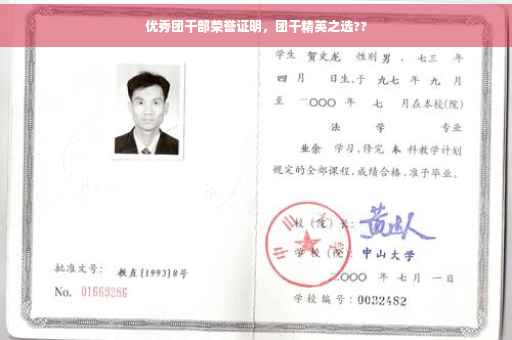 优秀团干部荣誉证明，团干精英之选??
学生 贺文龙 性别 男 、七三 年
四 月 日生,于 九七 年 九 月
至 二〇〇〇 年 七 月在本校(院)
法 学 专业
业余 学习,修完 本 科教学计划
规定的全部课程,成绩合格,准予毕业。
校 (院) 长:
学 校 (院): 中山大学
二〇〇〇 年 七 月 一 日
批准文号: 教直(1993)8号
No. 01669286
学校编号: 0032482